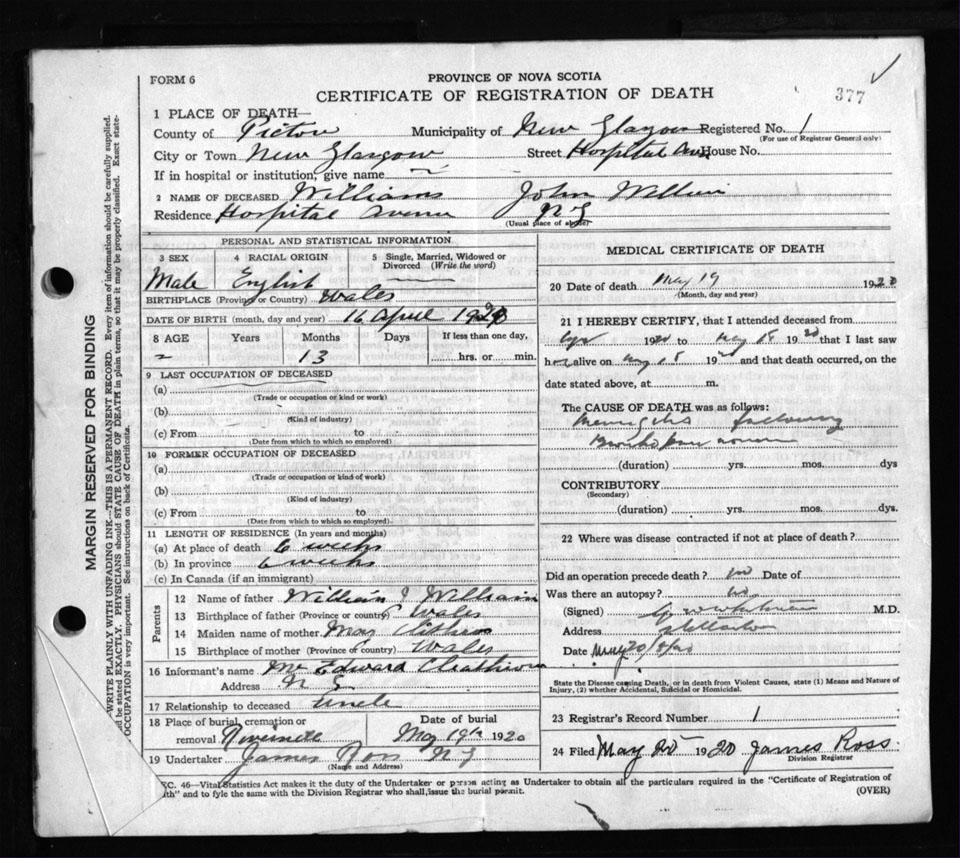 FORM 6
PROVINCE OF NOVA SCOTIA
CERTIFICATE OF REGISTRATION OF DEATH
377
1 PLACE OF DEATH—
County of Pictou Municipality of New Glasgow Registered No. 1
(For use of Registrar General only)
City or Town New Glasgow Street Hospital Ave House No.
If in hospital or institution, give name
2 NAME OF DECEASED Williams John
Residence Hospital Avenue N G
(Usual place of abode)
PERSONAL AND STATISTICAL INFORMATION
3 SEX 4 RACIAL ORIGIN 5 Single, Married, Widowed or Divorced (Write the word)
Male English
BIRTHPLACE (Province or Country) Wales
DATE OF BIRTH (month, day and year) 16 April
8 AGE Years Months Days If less than one day,
13 hrs. or min.
9 LAST OCCUPATION OF DECEASED
(a)
(Trade or occupation or kind or work)
(b)
(Kind of industry)
(c) From to
(Date from which to which so employed)
10 FORMER OCCUPATION OF DECEASED
(a)
(Trade or occupation or kind or work)
(b)
(Kind of industry)
(c) From to
(Date from which to which so employed)
11 LENGTH OF RESIDENCE (In years and months)
(a) At place of death 6 weeks
(b) In province 6 weeks
(c) In Canada (if an immigrant)
Parents
12 Name of father William J William
13 Birthplace of father (Province or country) Wales
14 Maiden name of mother May
15 Birthplace of mother (Province or country) Wales
16 Informant's name Mr Edward
Address N G
17 Relationship to deceased Uncle
18 Place of burial, cremation or removal Date of burial
Riverside May 19th 1920
19 Undertaker James Ross N G
(Name and Address)
MEDICAL CERTIFICATE OF DEATH
20 Date of death May 19 1920
(Month, day and year)
21 I HEREBY CERTIFY, that I attended deceased from
1920 to May 18 1920 that I last saw
alive on May 18 19 and that death occurred, on the
date stated above, at m.
The CAUSE OF DEATH was as follows:
Meningitis following
Broncho pneumonia
(duration) yrs. mos. dys
CONTRIBUTORY
(Secondary)
(duration) yrs. mos. dys.
22 Where was disease contracted if not at place of death?
Did an operation precede death? no Date of
Was there an autopsy? no
(Signed) M.D.
Address Stellarton
Date May 20
State the Disease causing Death, or in death from Violent Causes, state (1) Means and Nature of
Injury, (2) whether Accidental, Suicidal or Homicidal.
23 Registrar's Record Number 1
24 Filed May 20 1920 James Ross
Division Registrar
EC. 46—Vital Statistics Act makes it the duty of the Undertaker or person acting as Undertaker to obtain all the particulars required in the "Certificate of Registration of
th" and to fyle the same with the Division Registrar who shall issue the burial permit.
(OVER)
MARGIN RESERVED FOR BINDING
WRITE PLAINLY WITH UNFADING INK—THIS IS A PERMANENT RECORD. Every item of information should be carefully supplied.
be stated EXACTLY. PHYSICIANS should STATE CAUSE OF DEATH in plain terms, so that it may be properly classified. Exact state-
OCCUPATION is very important. See instructions on back of Certificate.